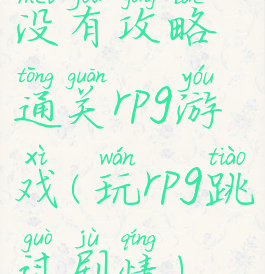 méi yǒu gōng lüè
没有攻略
tōng guān yóu
通关rpg游
xì wán tiào
戏(玩rpg跳
guò jù qíng
过剧情)